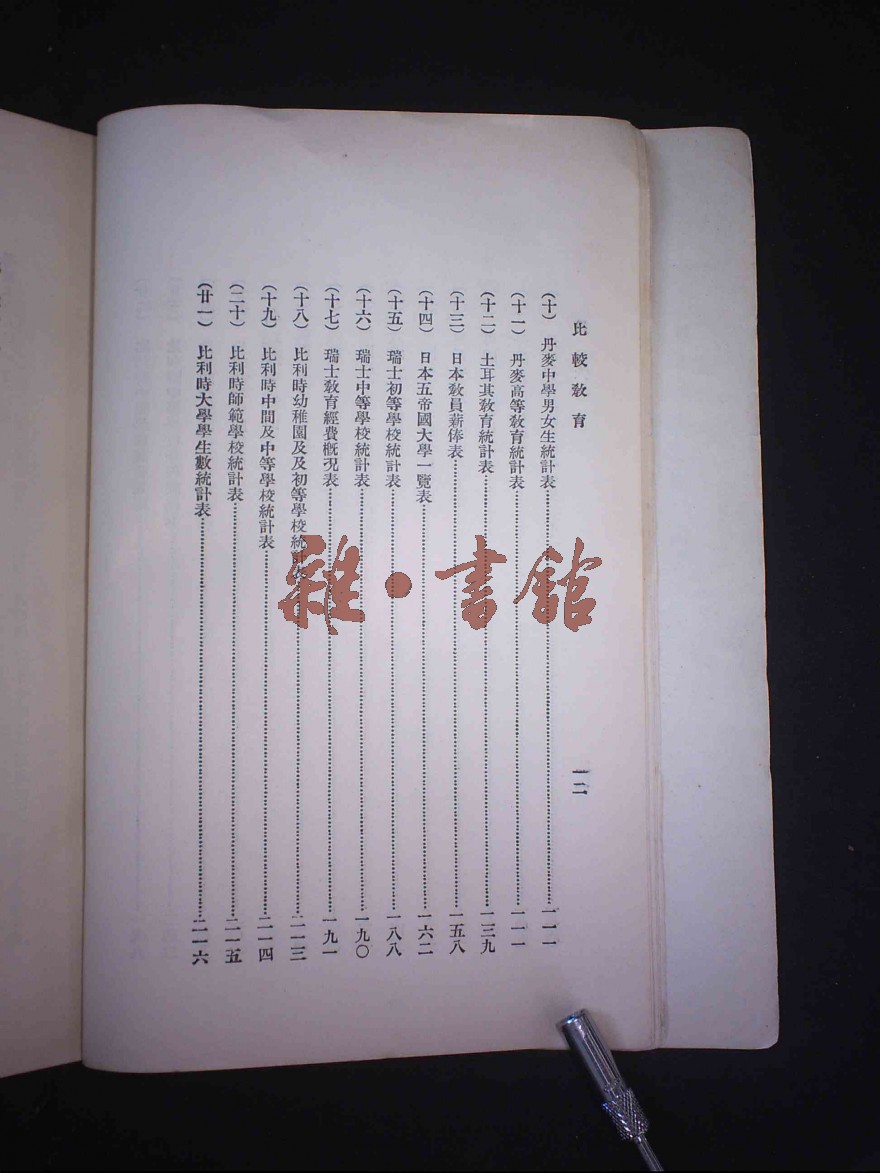 比較教育
一二
(十) 丹麥中學男女生統計表…………一一一
(十一) 丹麥高等教育統計表…………一一一
(十二) 土耳其教育統計表…………一三九
(十三) 日本教員薪俸表…………一五八
(十四) 日本五帝國大學一覽表…………一六二
(十五) 瑞士初等學校統計表…………一八八
(十六) 瑞士中等學校統計表…………一九〇
(十七) 瑞士教育經費概況表…………一九一
(十八) 比利時幼稚園及及初等學校統計表…………二一三
(十九) 比利時中間及中等學校統計表…………二一四
(二十) 比利時師範學校統計表…………二一五
(廿一) 比利時大學學生數統計表…………二一六
雜·書館